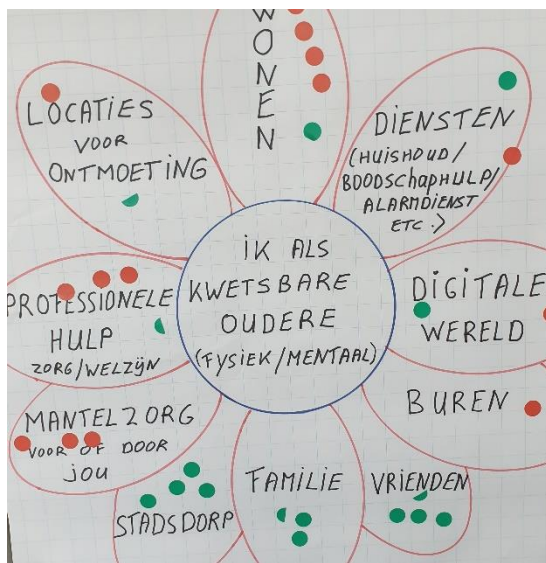 WONEN
LOCATIES
VOOR
ONTMOETING
DIENSTEN
(HUISHOUD/
BOODSCHAPHULP/
ALARMDIENST
ETC.)
iK ALS
KWETSBARE
OUDERE
(FYSIEK/MENTAAL)
PROFESSIONELE
HULP
ZORG/WELZIJN
DIGITALE
WERELD
BUREN
MANTELZORG
VOOR OF DOOR
jou
STADSDORP
FAMILIE
VRIENDEN